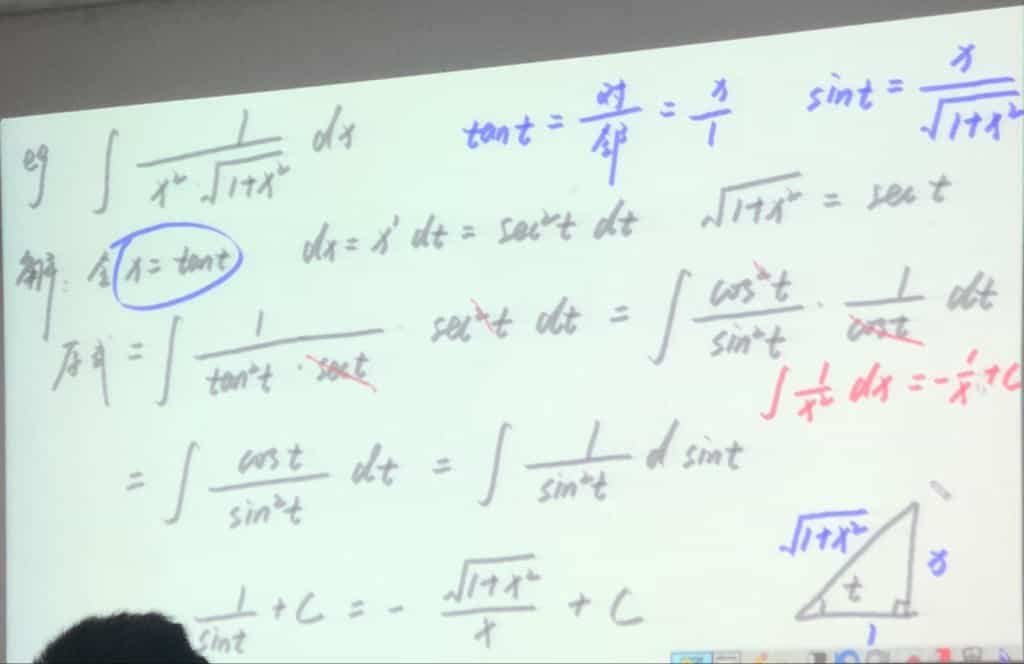 eg ∫ 1/(x²·√(1+x²)) dx
tant = 对/邻 = x/1
sint = x/√(1+x²)
解: 令 x = tant dx = x' dt = sec²t dt √(1+x²) = sec t
原式 = ∫ 1/(tan²t · sect) sec²t dt = ∫ cos²t/sin²t · 1/cost dt
∫ 1/x² dx = -1/x + C
= ∫ cost/sin²t dt = ∫ 1/sin²t d sint
1/sint + C = - √(1+x²)/x + C
√(1+x²)
x
t
1